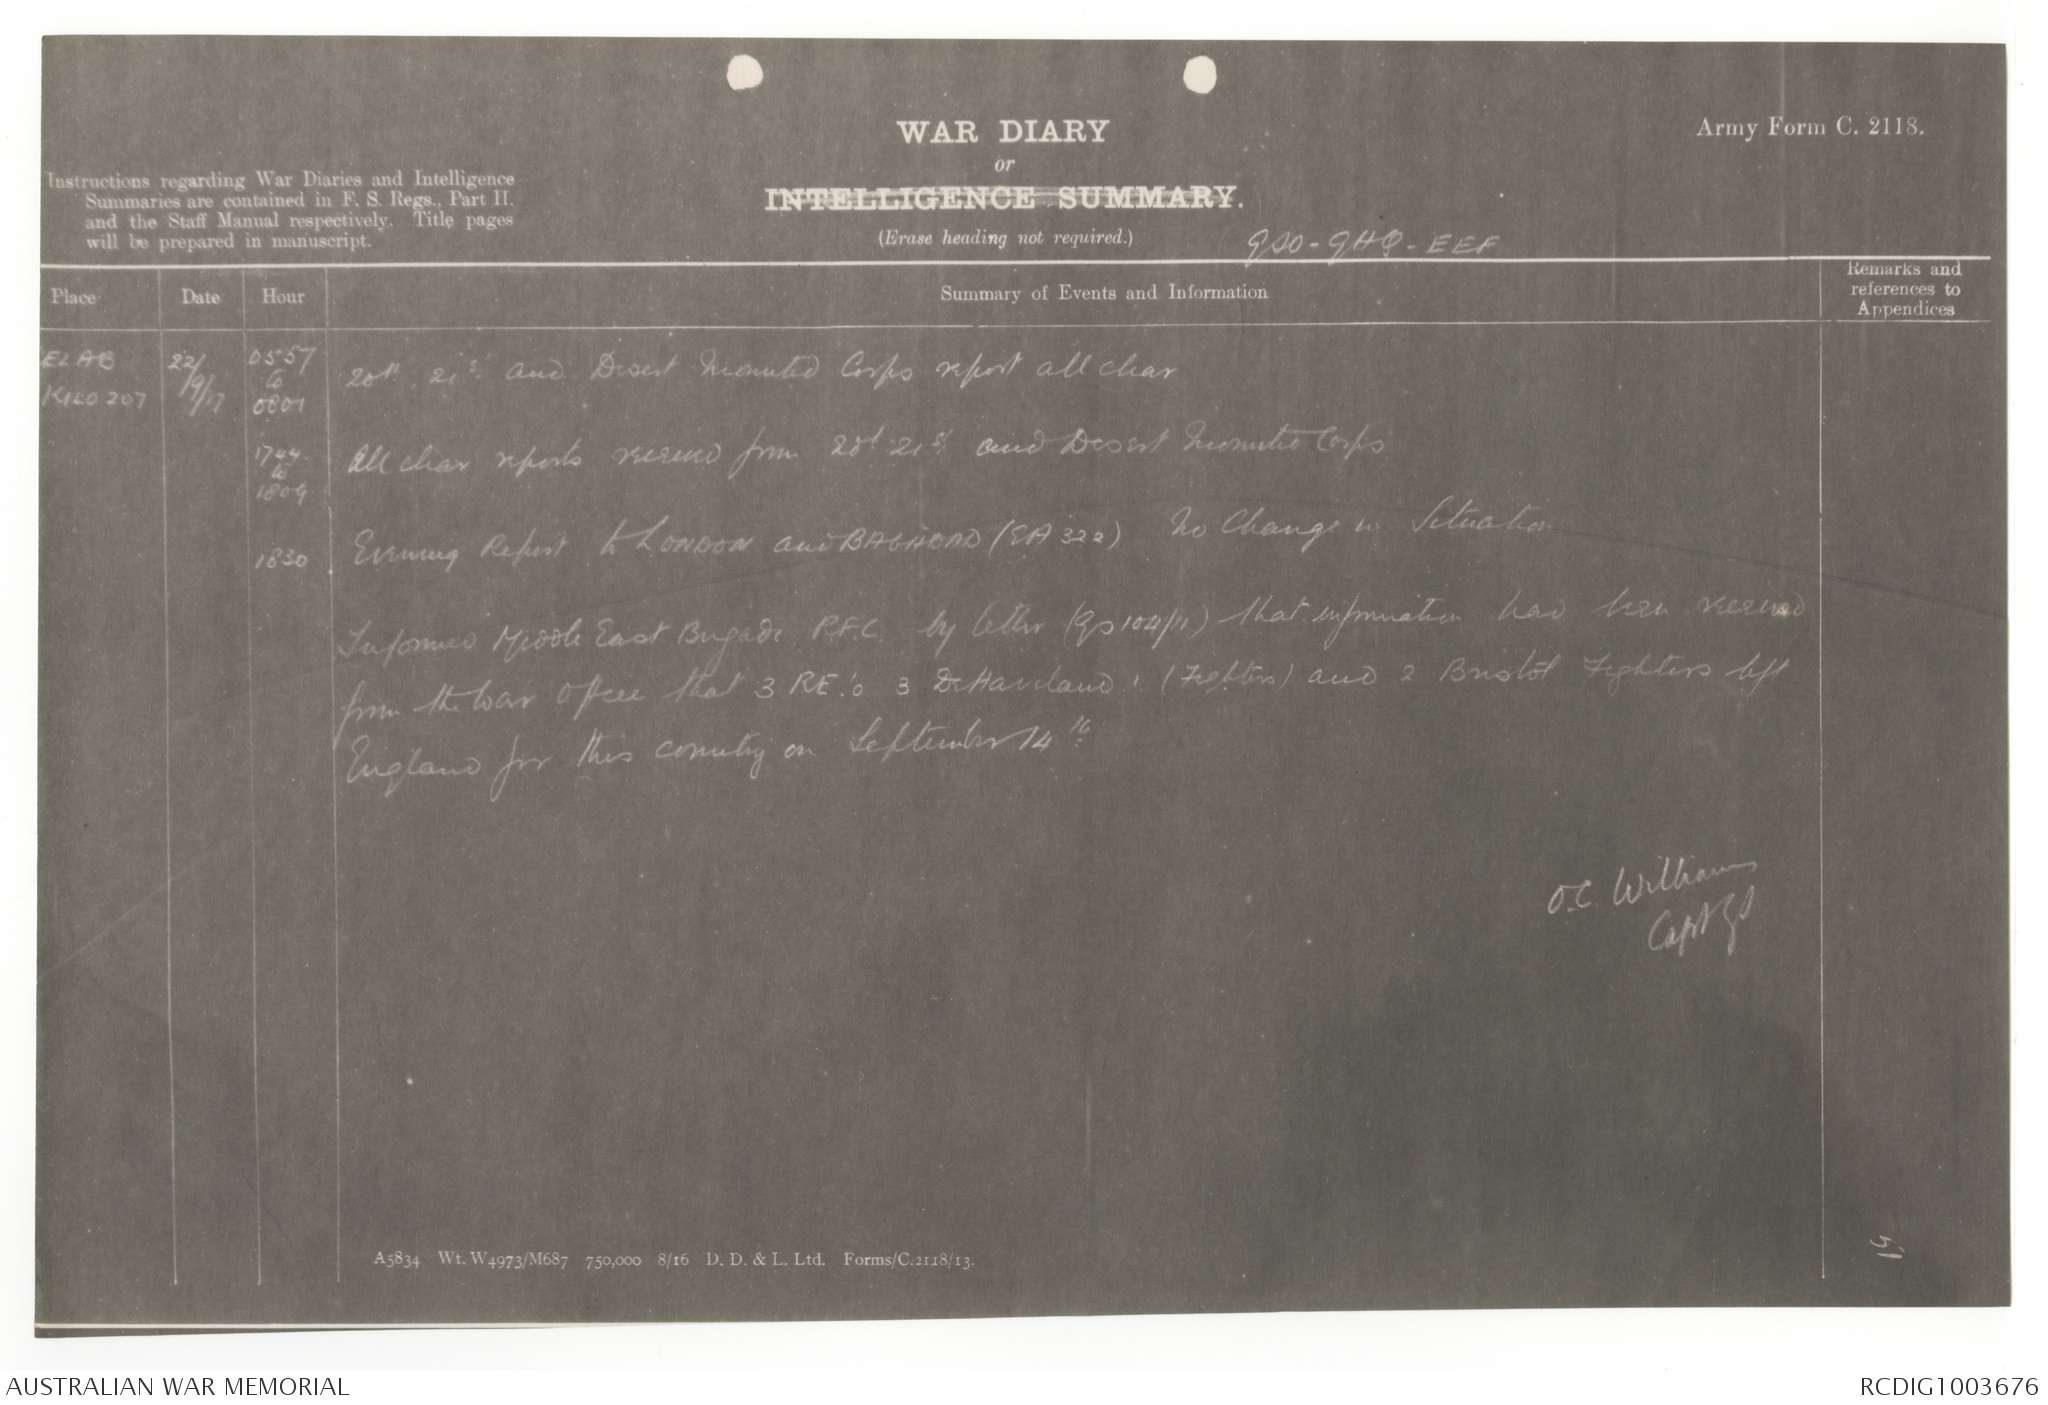 WAR DIARY
or
INTELLIGENCE SUMMARY.
(Erase heading not required.)
Army Form C. 2118.
Instructions regarding War Diaries and Intelligence
Summaries are contained in F. S. Regs., Part II.
and the Staff Manual respectively. Title pages
will be prepared in manuscript.
GSO - GHQ - EEF
Place Date Hour Summary of Events and Information Remarks and
references to
Appendices
EL AB 22/ 0557 20th, 21st and Desert Mounted Corps report all clear
KILO 207 9/17 to
0801
1744 All clear reports received from 20th 21st and Desert Mounted Corps
to
1809
1830 Evening Report to LONDON and BAGHDAD (EA 322) No Change in Situation
Informed Middle East Brigade R.F.C. by letter (GS 104/11) that information had been received
from the War Office that 3 RE.'s 3 DeHaviland (Fighters) and 2 Bristol Fighters left
England for this country on September 14th
O.C. Williams
Capt GS
A5834 Wt. W4973/M687 750,000 8/16 D. D. & L. Ltd. Forms/C.2118/13.
AUSTRALIAN WAR MEMORIAL
RCDIG1003676